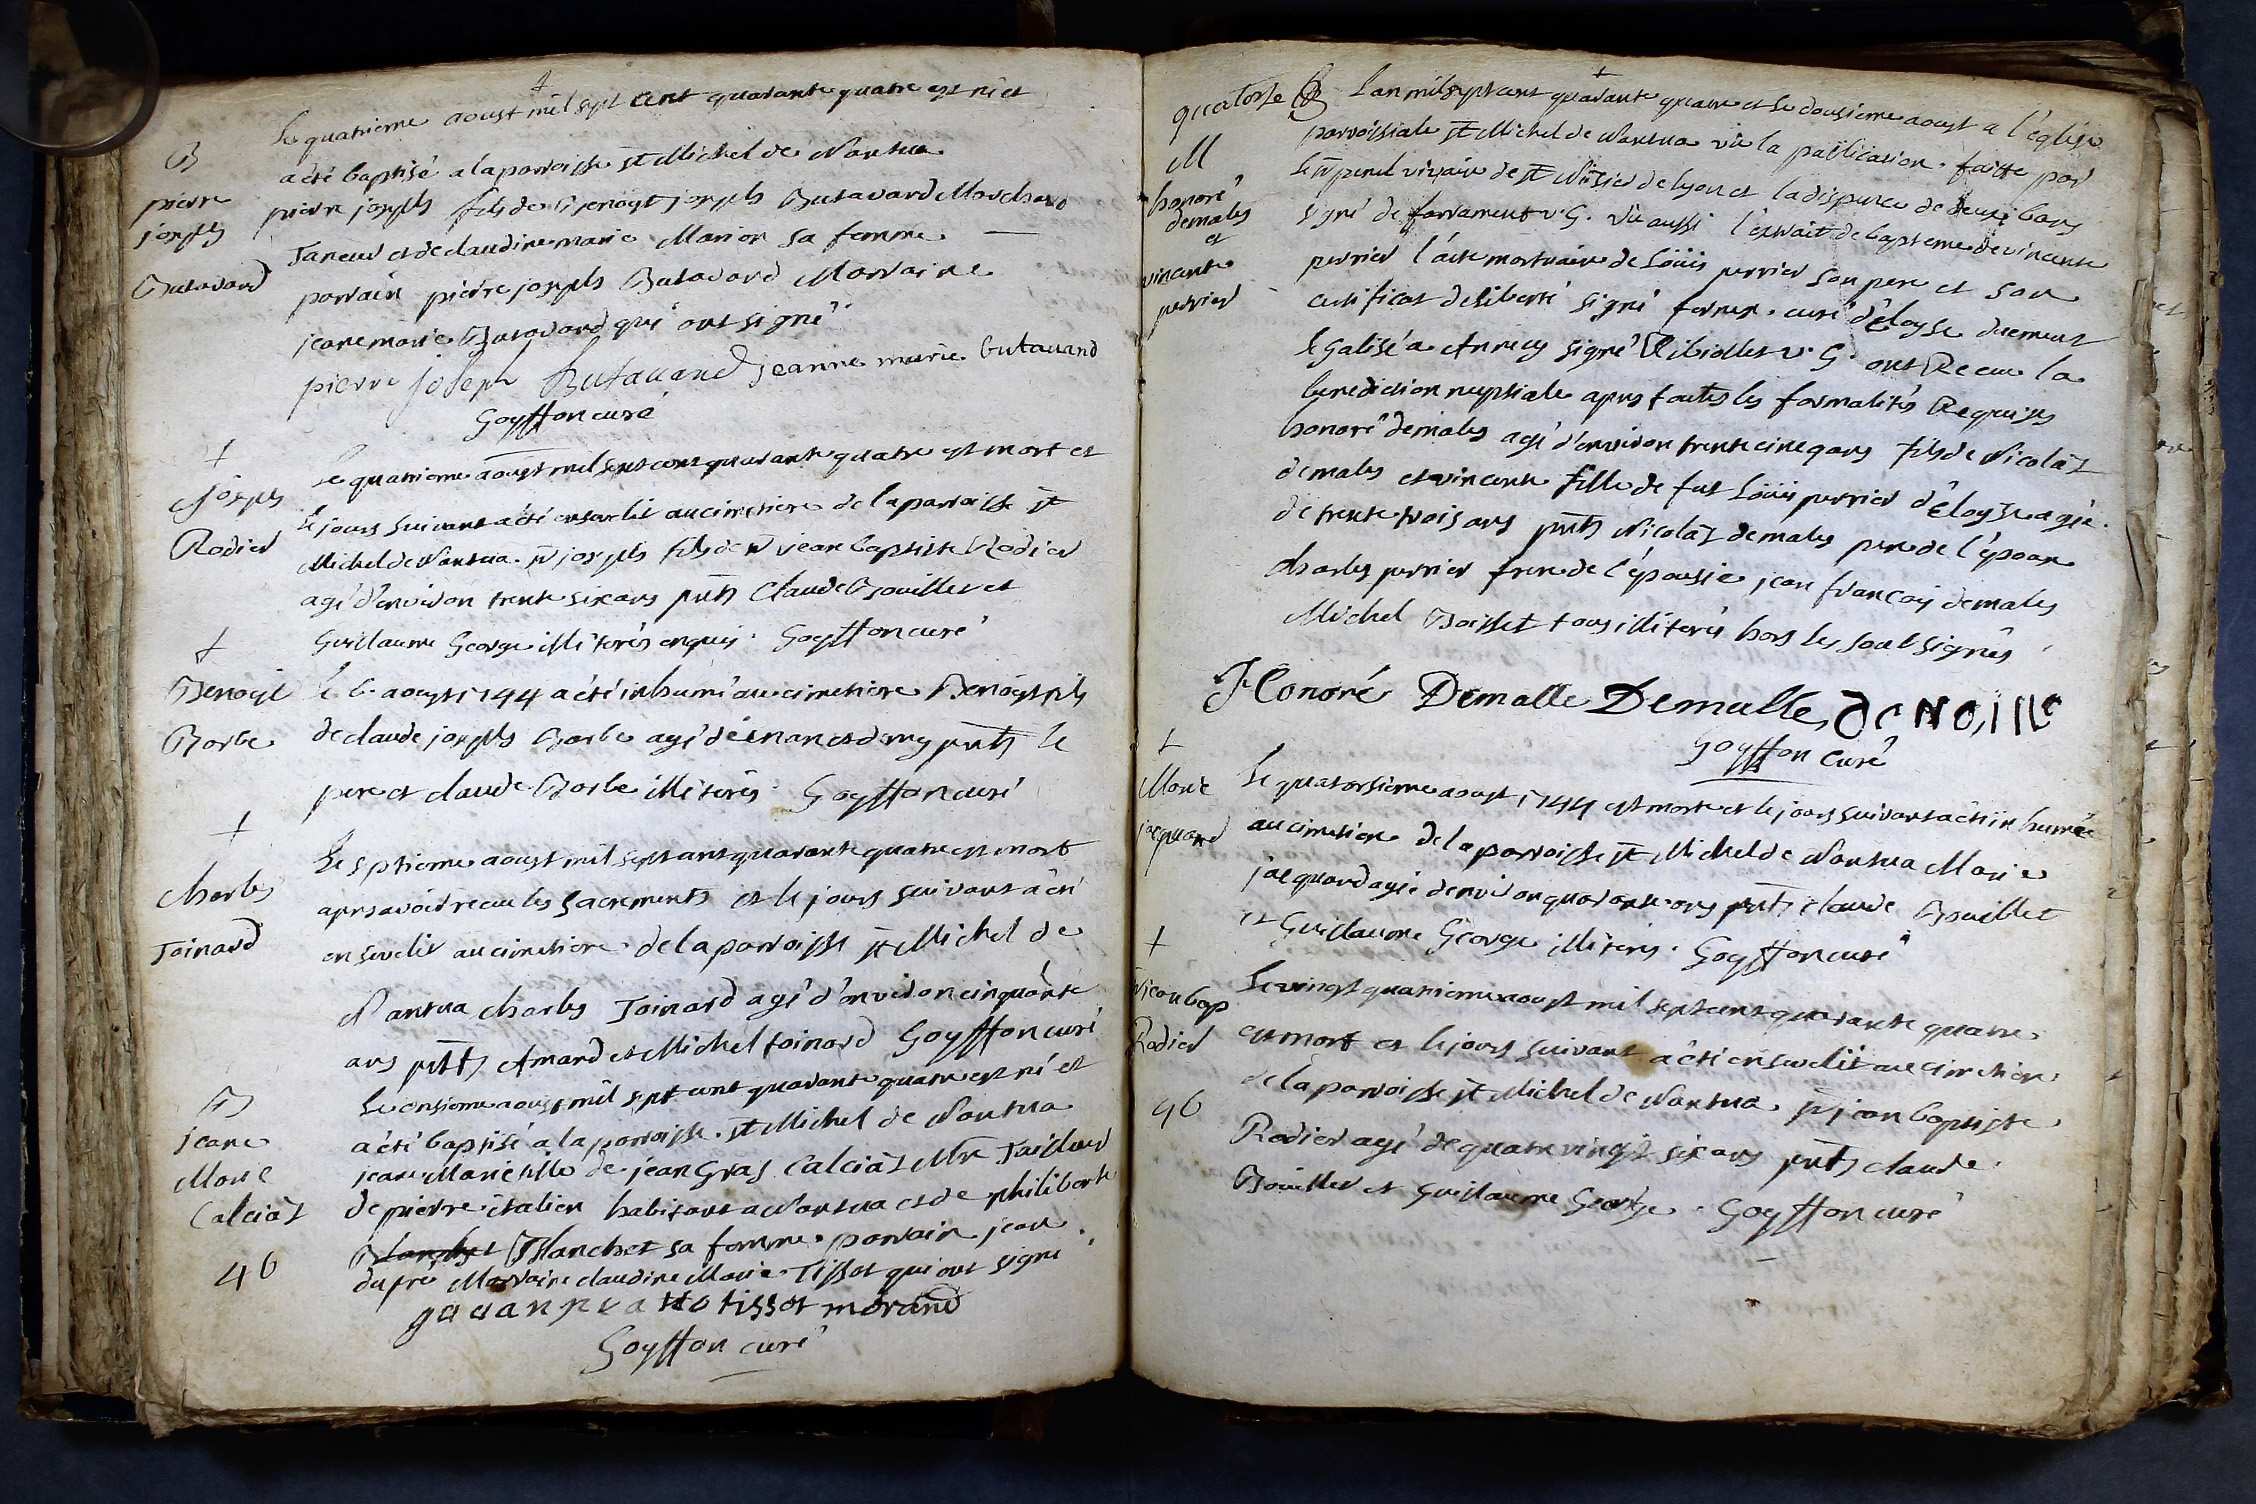 Le quatrieme aoust mil sept cent quarante quatre est né et
B
a été baptisé a la paroisse st Michel de Nantua
pierre
joseph
pierre joseph fils de benoyt joseph Butavand Marchand
Taneur et de claudine marie Marion sa femme
Butavand
parrain pierre joseph Butavand Marraine
jeane marie Butavand qui ont signé
pierre joseph Butavand jeanne marie butavand
Goyffon curé
Le quatrieme aoust mil sept cent quarante quatre est mort et
joseph
le jours suivant a été ensevelit au cimetiere de la paroisse st
Rodier
Michel de Nantua sr joseph fils de sr jean baptiste Rodier
agé d'environ trente six ans pnts Claude Bouillet et
Guillaume George illiterés enquis Goyffon curé
Benoyt
le 6 aoust 1744 a été inhumé au cimetiere Benoyt fils
Borbe
de claude joseph Borbe agé de un an et demy pnts le
pere et claude Borbe illiterés Goyffon curé
Le septieme aoust mil sept cent quarante quatre est mort
charles
apres avoir receu les sacrements et le jours suivant a été
Joinard
ensevelit au cimetiere de la paroisse st Michel de
Nantua charles Joinard agé d'environ cinquante
ans pnts Amard et Michel Joinard Goyffon curé
B
Le onsieme aoust mil sept cent quarante quatre est né et
jeane
a été baptisé a la paroisse st Michel de Nantua
Marie
jeane Marie fille de jean Gras Calciat Mtre Tailleur
Calciat
de pierre italien habitant a Nantua et de philiberte
Blanchet Blanchet sa femme parrain jean
46
dupré Marraine claudine Marie Tissot qui ont signé
tissot morand
Goyffon curé
quatorse
L'an mil sept cent quarante quatre et le dousieme aoust a l'église
M
parroissiale st Michel de Nantua vu la publication faitte par
honoré
le sr penel vicaire de st Nisier de lyon et la dispence de deux bans
demales
et
signé de farrament v. G. vu aussi l'extrait de bapteme de vincente
vincente
perrier l'acte mortuaire de Louis perrier son pere et son
perrier
certificat de liberté signé curé d'Eloyse duement
legalisé a Annecy signé Ribiollet v. G. ont Receu la
benediction nuptiale apres touttes les formalités Requises
honoré demales agé d'environ trente cinq ans fils de Nicolas
demales et vincente fille de fut Louis perrier d'Eloyse agée
de trente trois ans pnts Nicolas demales pere de l'époux
charles perrier frere de l'épouse jean françois demales
Michel Boisset tous illiterés hors les soubsignés
Honoré Demalle Demalle
Goyffon curé
Marie
Le quatorsieme aoust 1744 est morte et le jours suivant a été inhumée
jacquand
au cimetiere de la parroisse st Michel de Nantua Marie
jacquand agée d'environ quarante ans pnts claude Bouillet
et Guillaume George illiterés Goyffon curé
jean bap
Le vingt quatrieme aoust mil sept cent quarante quatre
Rodier
est mort et le jours suivant a été ensevelit au cimetiere
46
de la paroisse st Michel de Nantua sr jean baptiste
Rodier agé de quatre vingt six ans pnts claude
Bouillet et Guillaume George Goyffon curé